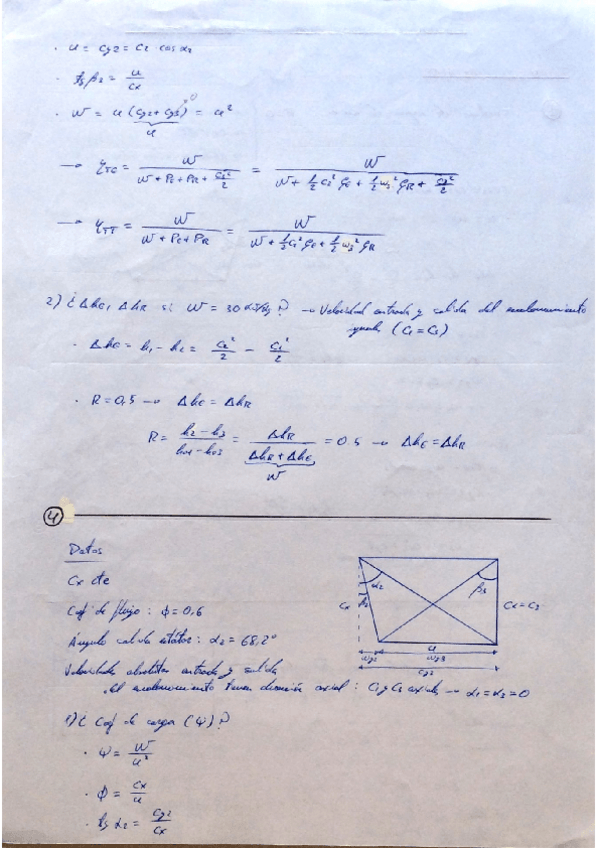 · u = Cy2 = C2 cos α2
· tg β3 = u/Cx
· W = u (Cy2 + Cy3) = u²
0
u
→ ηTE = W / (W + PE + PR + C3²/2) = W / (W + 1/2 C2² ζE + 1/2 W3² ζR + C3²/2)
→ ηTT = W / (W + PE + PR) = W / (W + 1/2 C2² ζE + 1/2 W3² ζR)
2) ¿ ΔhE, ΔhR si W = 30 kJ/kg ? → Velocidad entrada y salida del escalonamiento
iguales (C1 = C3)
· ΔhE = h1 - h2 = C2²/2 - C1²/2
· R = 0,5 → ΔhE = ΔhR
R = (h2 - h3)/(h01 - h03) = ΔhR/(ΔhR + ΔhE) = 0.5 → ΔhE = ΔhR
W
4
Datos
Cx cte
Coef. de flujo : ϕ = 0.6
Ángulo salida estátor : α2 = 68,2°
Velocidades absolutas entrada y salida
del escalonamiento tienen dirección axial : C1 y C3 axiales → α1 = α3 = 0
Cx
α2
β2
β3
Cx = C3
u
Wy2
Wy3
Cy2
1) ¿ Coef. de carga (Ψ) ?
· Ψ = W/u²
· ϕ = Cx/u
· tg α2 = Cy2/Cx